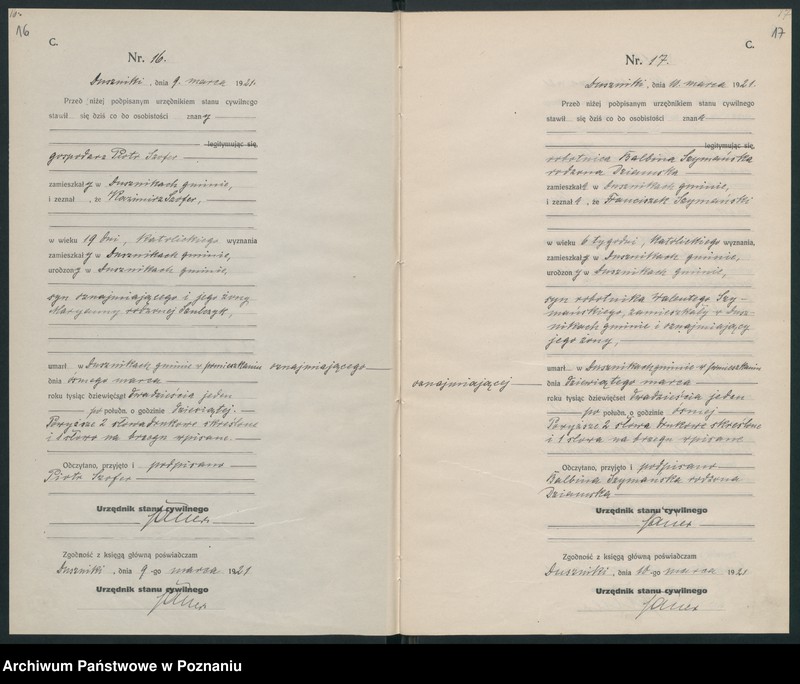 16
C.
Nr. 16.
Duszniki, dnia 9. marca 1921.
Przed niżej podpisanym urzędnikiem stanu cywilnego
stawił się dziś co do osobistości znany
legitymując się
gospodarz Piotr Szofer
zamieszkały w Dusznikach gminie,
i zeznał, że Kazimierz Szofer,
w wieku 19 dni, katolickiego wyznania
zamieszkały w Dusznikach gminie,
urodzony w Dusznikach gminie,
syn oznajmiającego i jego żony
Maryanny rodzonej
umarł w Dusznikach gminie w pomieszkaniu oznajmiającego
dnia ósmego marca
roku tysiąc dziewięćset dwadzieścia jeden
po połudn. o godzinie dziewiątej.
Powyższe 2 słowa drukowe skreślone
i 1 słowo na brzegu wpisane.
Odczytano, przyjęto i podpisano
Piotr Szofer
Urzędnik stanu cywilnego
Zgodność z księgą główną poświadczam
Duszniki, dnia 9-go marca 1921
Urzędnik stanu cywilnego
17
C.
Nr. 17.
Duszniki, dnia marca 1921.
Przed niżej podpisanym urzędnikiem stanu cywilnego
stawił się dziś co do osobistości znana
legitymując się
robotnica Balbina Szymańska
rodzona Dziamska
zamieszkała w Dusznikach gminie,
i zeznała, że Franciszek Szymański
w wieku 6 tygodni, katolickiego wyznania,
zamieszkały w Dusznikach gminie,
urodzony w Dusznikach gminie,
syn robotnika Walentego Szy-
mańskiego, zamieszkały w Dusz-
nikach gminie i oznajmiającej
jego żony,
umarł w Dusznikach gminie w pomieszkaniu
oznajmiającej
dnia dziewiątego marca
roku tysiąc dziewięćset dwadzieścia jeden
po połudn. o godzinie ósmej
Powyższe 2 słowa drukowe skreślone
i 1 słowa na brzegu wpisane
Odczytano, przyjęto i podpisano
Balbina Szymańska rodzona
Dziamska
Urzędnik stanu cywilnego
Zgodność z księgą główną poświadczam
Duszniki, dnia 10-go marca 1921
Urzędnik stanu cywilnego
Archiwum Państwowe w Poznaniu